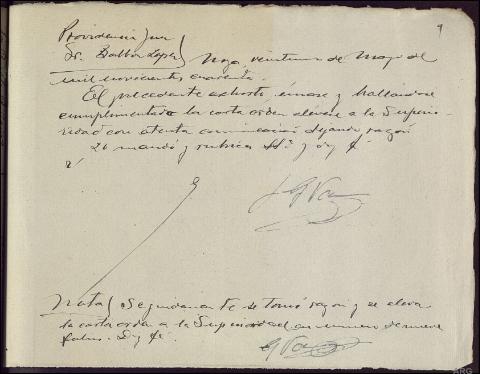 9
Providencia Juez
Sr. Balboa Lopez} Noya, veintiuno de Mayo de
mil novecientos cuarenta.
El precedente exhorto únase y hallandose
cumplimentada la carta orden elévese a la Superio-
ridad con atenta comunicación dejando razón
Lo mandó y rubrica Sª y doy fé.
Nota} Seguidamente se tomó razón y se eleva
la carta orden a la Superioridad en número de nueve
folios. Doy fé.
ARG